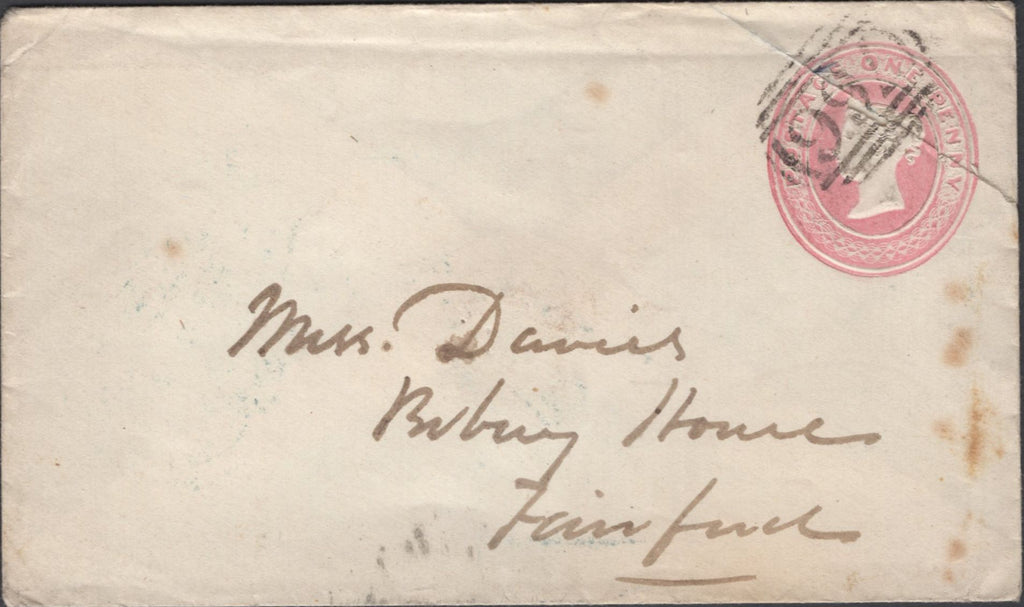 POSTAGE ONE PENNY
Miss. Davies
Bibury House
Fairford